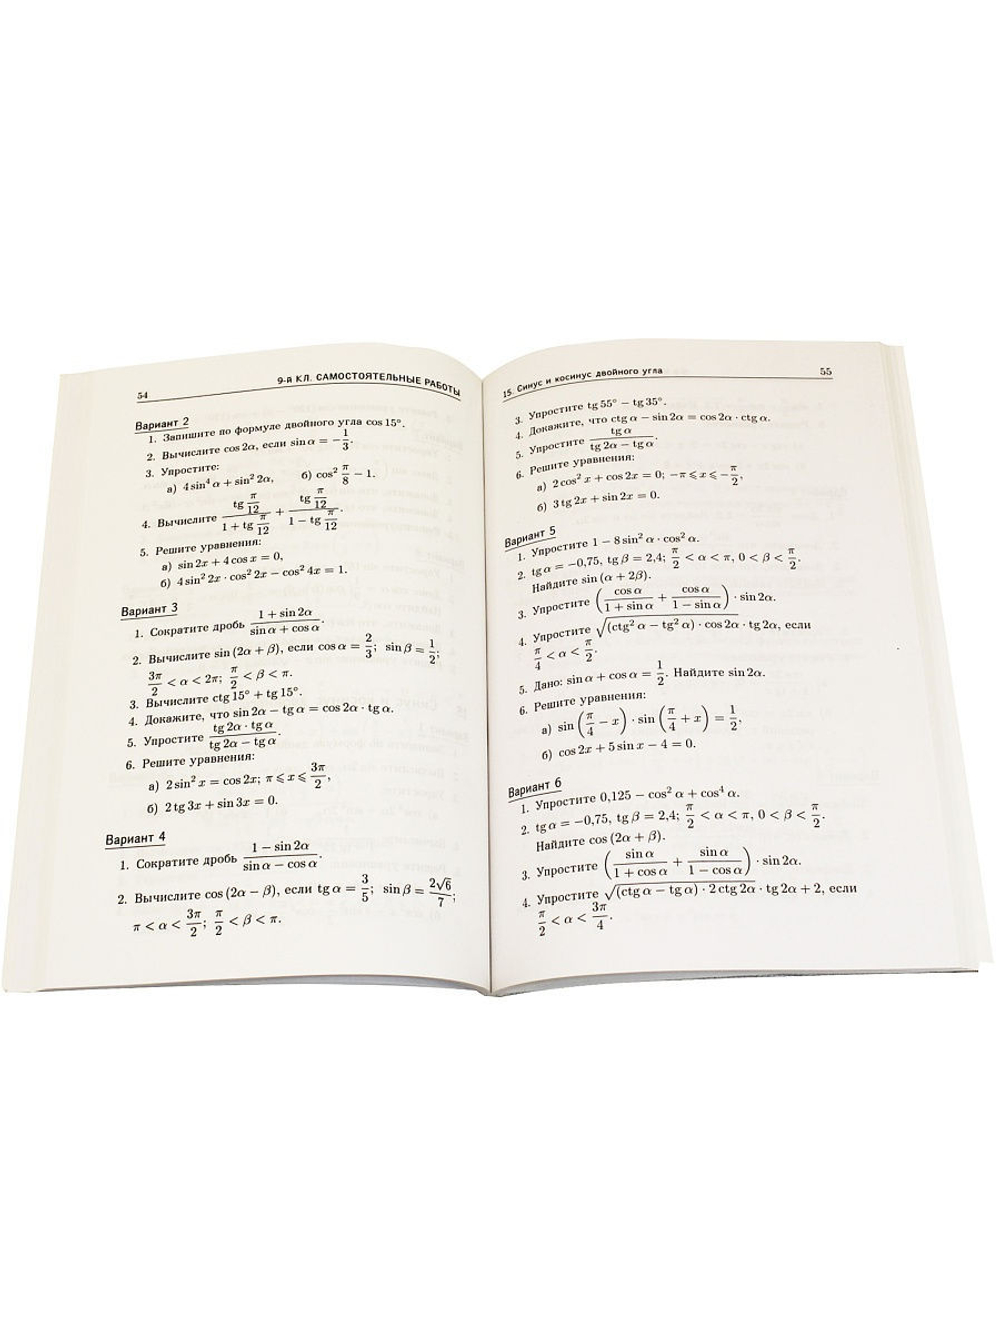 54
9-й КЛ. САМОСТОЯТЕЛЬНЫЕ РАБОТЫ
Вариант 2
1. Запишите по формуле двойного угла cos 15°.
2. Вычислите cos 2α, если sin α = −1/3.
3. Упростите:
а) 4 sin⁴ α + sin² 2α, б) cos² π/8 − 1.
4. Вычислите (tg π/12)/(1 + tg π/12) + (tg π/12)/(1 − tg π/12).
5. Решите уравнения:
а) sin 2x + 4 cos x = 0,
б) 4 sin² 2x · cos² 2x − cos² 4x = 1.
Вариант 3
1. Сократите дробь (1 + sin 2α)/(sin α + cos α).
2. Вычислите sin (2α + β), если cos α = 2/3; sin β = 1/2;
3π/2 < α < 2π; π/2 < β < π.
3. Вычислите ctg 15° + tg 15°.
4. Докажите, что sin 2α − tg α = cos 2α · tg α.
5. Упростите (tg 2α · tg α)/(tg 2α − tg α).
6. Решите уравнения:
а) 2 sin² x = cos 2x; π ⩽ x ⩽ 3π/2,
б) 2 tg 3x + sin 3x = 0.
Вариант 4
1. Сократите дробь (1 − sin 2α)/(sin α − cos α).
2. Вычислите cos (2α − β), если tg α = 3/5; sin β = 2√6/7;
π < α < 3π/2; π/2 < β < π.
15. Синус и косинус двойного угла
55
3. Упростите tg 55° − tg 35°.
4. Докажите, что ctg α − sin 2α = cos 2α · ctg α.
5. Упростите (tg α)/(tg 2α − tg α).
6. Решите уравнения:
а) 2 cos² x + cos 2x = 0; −π ⩽ x ⩽ −π/2,
б) 3 tg 2x + sin 2x = 0.
Вариант 5
1. Упростите 1 − 8 sin² α · cos² α.
2. tg α = −0,75, tg β = 2,4; π/2 < α < π, 0 < β < π/2.
Найдите sin (α + 2β).
3. Упростите (cos α/(1 + sin α) + cos α/(1 − sin α)) · sin 2α.
4. Упростите √((ctg² α − tg² α) · cos 2α) · tg 2α, если
π/4 < α < π/2.
5. Дано: sin α + cos α = 1/2. Найдите sin 2α.
6. Решите уравнения:
а) sin (π/4 − x) · sin (π/4 + x) = 1/2,
б) cos 2x + 5 sin x − 4 = 0.
Вариант 6
1. Упростите 0,125 − cos² α + cos⁴ α.
2. tg α = −0,75, tg β = 2,4; π/2 < α < π, 0 < β < π/2.
Найдите cos (2α + β).
3. Упростите (sin α/(1 + cos α) + sin α/(1 − cos α)) · sin 2α.
4. Упростите √((ctg α − tg α) · 2 ctg 2α) · tg 2α + 2, если
π/2 < α < 3π/4.